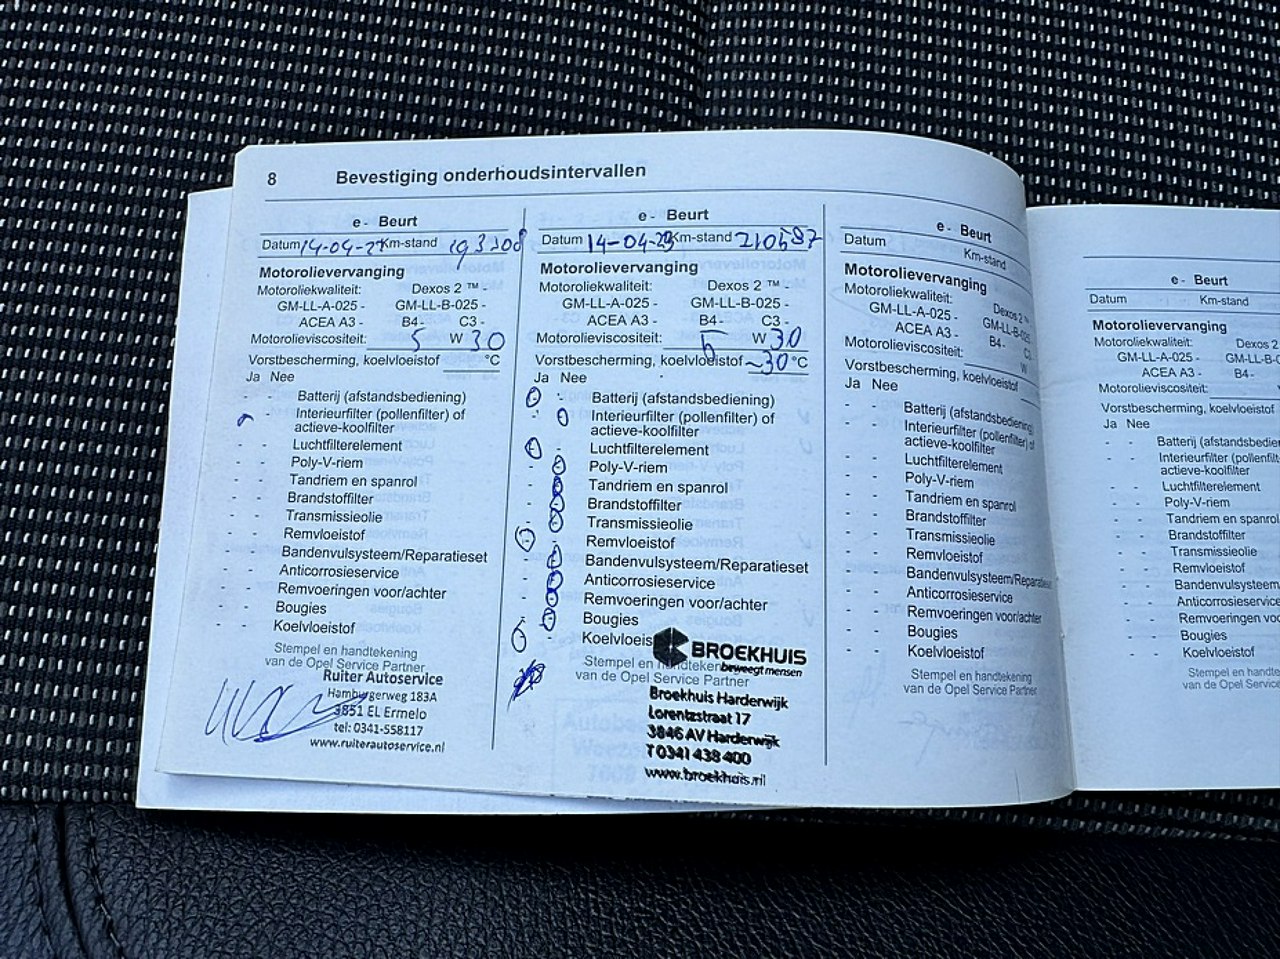 8 Bevestiging onderhoudsintervallen
e - Beurt
Datum 14-04-21 Km-stand
Motorolievervanging
Motoroliekwaliteit: Dexos 2 ™ -
GM-LL-A-025 - GM-LL-B-025 -
ACEA A3 - B4 - C3 -
Motorolieviscositeit: 5 W 30
Vorstbescherming, koelvloeistof °C
Ja Nee
- - Batterij (afstandsbediening)
- Interieurfilter (pollenfilter) of
actieve-koolfilter
- - Luchtfilterelement
- - Poly-V-riem
- - Tandriem en spanrol
- - Brandstoffilter
- - Transmissieolie
- - Remvloeistof
- - Bandenvulsysteem/Reparatieset
- - Anticorrosieservice
- - Remvoeringen voor/achter
- - Bougies
- - Koelvloeistof
Stempel en handtekening
van de Opel Service Partner
Ruiter Autoservice
Hamburgerweg 183A
3851 EL Ermelo
tel: 0341-558117
www.ruiterautoservice.nl
e - Beurt
Datum 14-04-23 Km-stand 210587
Motorolievervanging
Motoroliekwaliteit: Dexos 2 ™ -
GM-LL-A-025 - GM-LL-B-025 -
ACEA A3 - B4 - C3 -
Motorolieviscositeit: 5 W 30
Vorstbescherming, koelvloeistof ~30 °C
Ja Nee
Batterij (afstandsbediening)
Interieurfilter (pollenfilter) of
actieve-koolfilter
Luchtfilterelement
Poly-V-riem
Tandriem en spanrol
Brandstoffilter
Transmissieolie
Remvloeistof
Bandenvulsysteem/Reparatieset
Anticorrosieservice
Remvoeringen voor/achter
Bougies
Koelvloeis
BROEKHUIS
beweegt mensen
Stempel en handteken
van de Opel Service Partner
Broekhuis Harderwijk
Lorentzstraat 17
3846 AV Harderwijk
T 0341 438 400
www.broekhuis.nl
e - Beurt
Datum Km-stand
Motorolievervanging
Motoroliekwaliteit: Dexos 2 ™
GM-LL-A-025 - GM-LL-B-025
ACEA A3 - B4 - C3
Motorolieviscositeit: W
Vorstbescherming, koelvloeistof
Ja Nee
- - Batterij (afstandsbediening)
- - Interieurfilter (pollenfilter) of
actieve-koolfilter
- - Luchtfilterelement
- - Poly-V-riem
- - Tandriem en spanrol
- - Brandstoffilter
- - Transmissieolie
- - Remvloeistof
- - Bandenvulsysteem/Reparatieset
- - Anticorrosieservice
- - Remvoeringen voor/achter
- - Bougies
- - Koelvloeistof
Stempel en handtekening
van de Opel Service Partner
e - Beurt
Datum Km-stand
Motorolievervanging
Motoroliekwaliteit: Dexos 2
GM-LL-A-025 - GM-LL-B-02
ACEA A3 - B4 -
Motorolieviscositeit:
Vorstbescherming, koelvloeistof
Ja Nee
- - Batterij (afstandsbedie
- - Interieurfilter (pollenfilt
actieve-koolfilter
- - Luchtfilterelement
- - Poly-V-riem
- - Tandriem en spanrol
- - Brandstoffilter
- - Transmissieolie
- - Remvloeistof
- - Bandenvulsysteem
- - Anticorrosieservice
- - Remvoeringen voor
- - Bougies
- - Koelvloeistof
Stempel en hand
van de Opel Servi